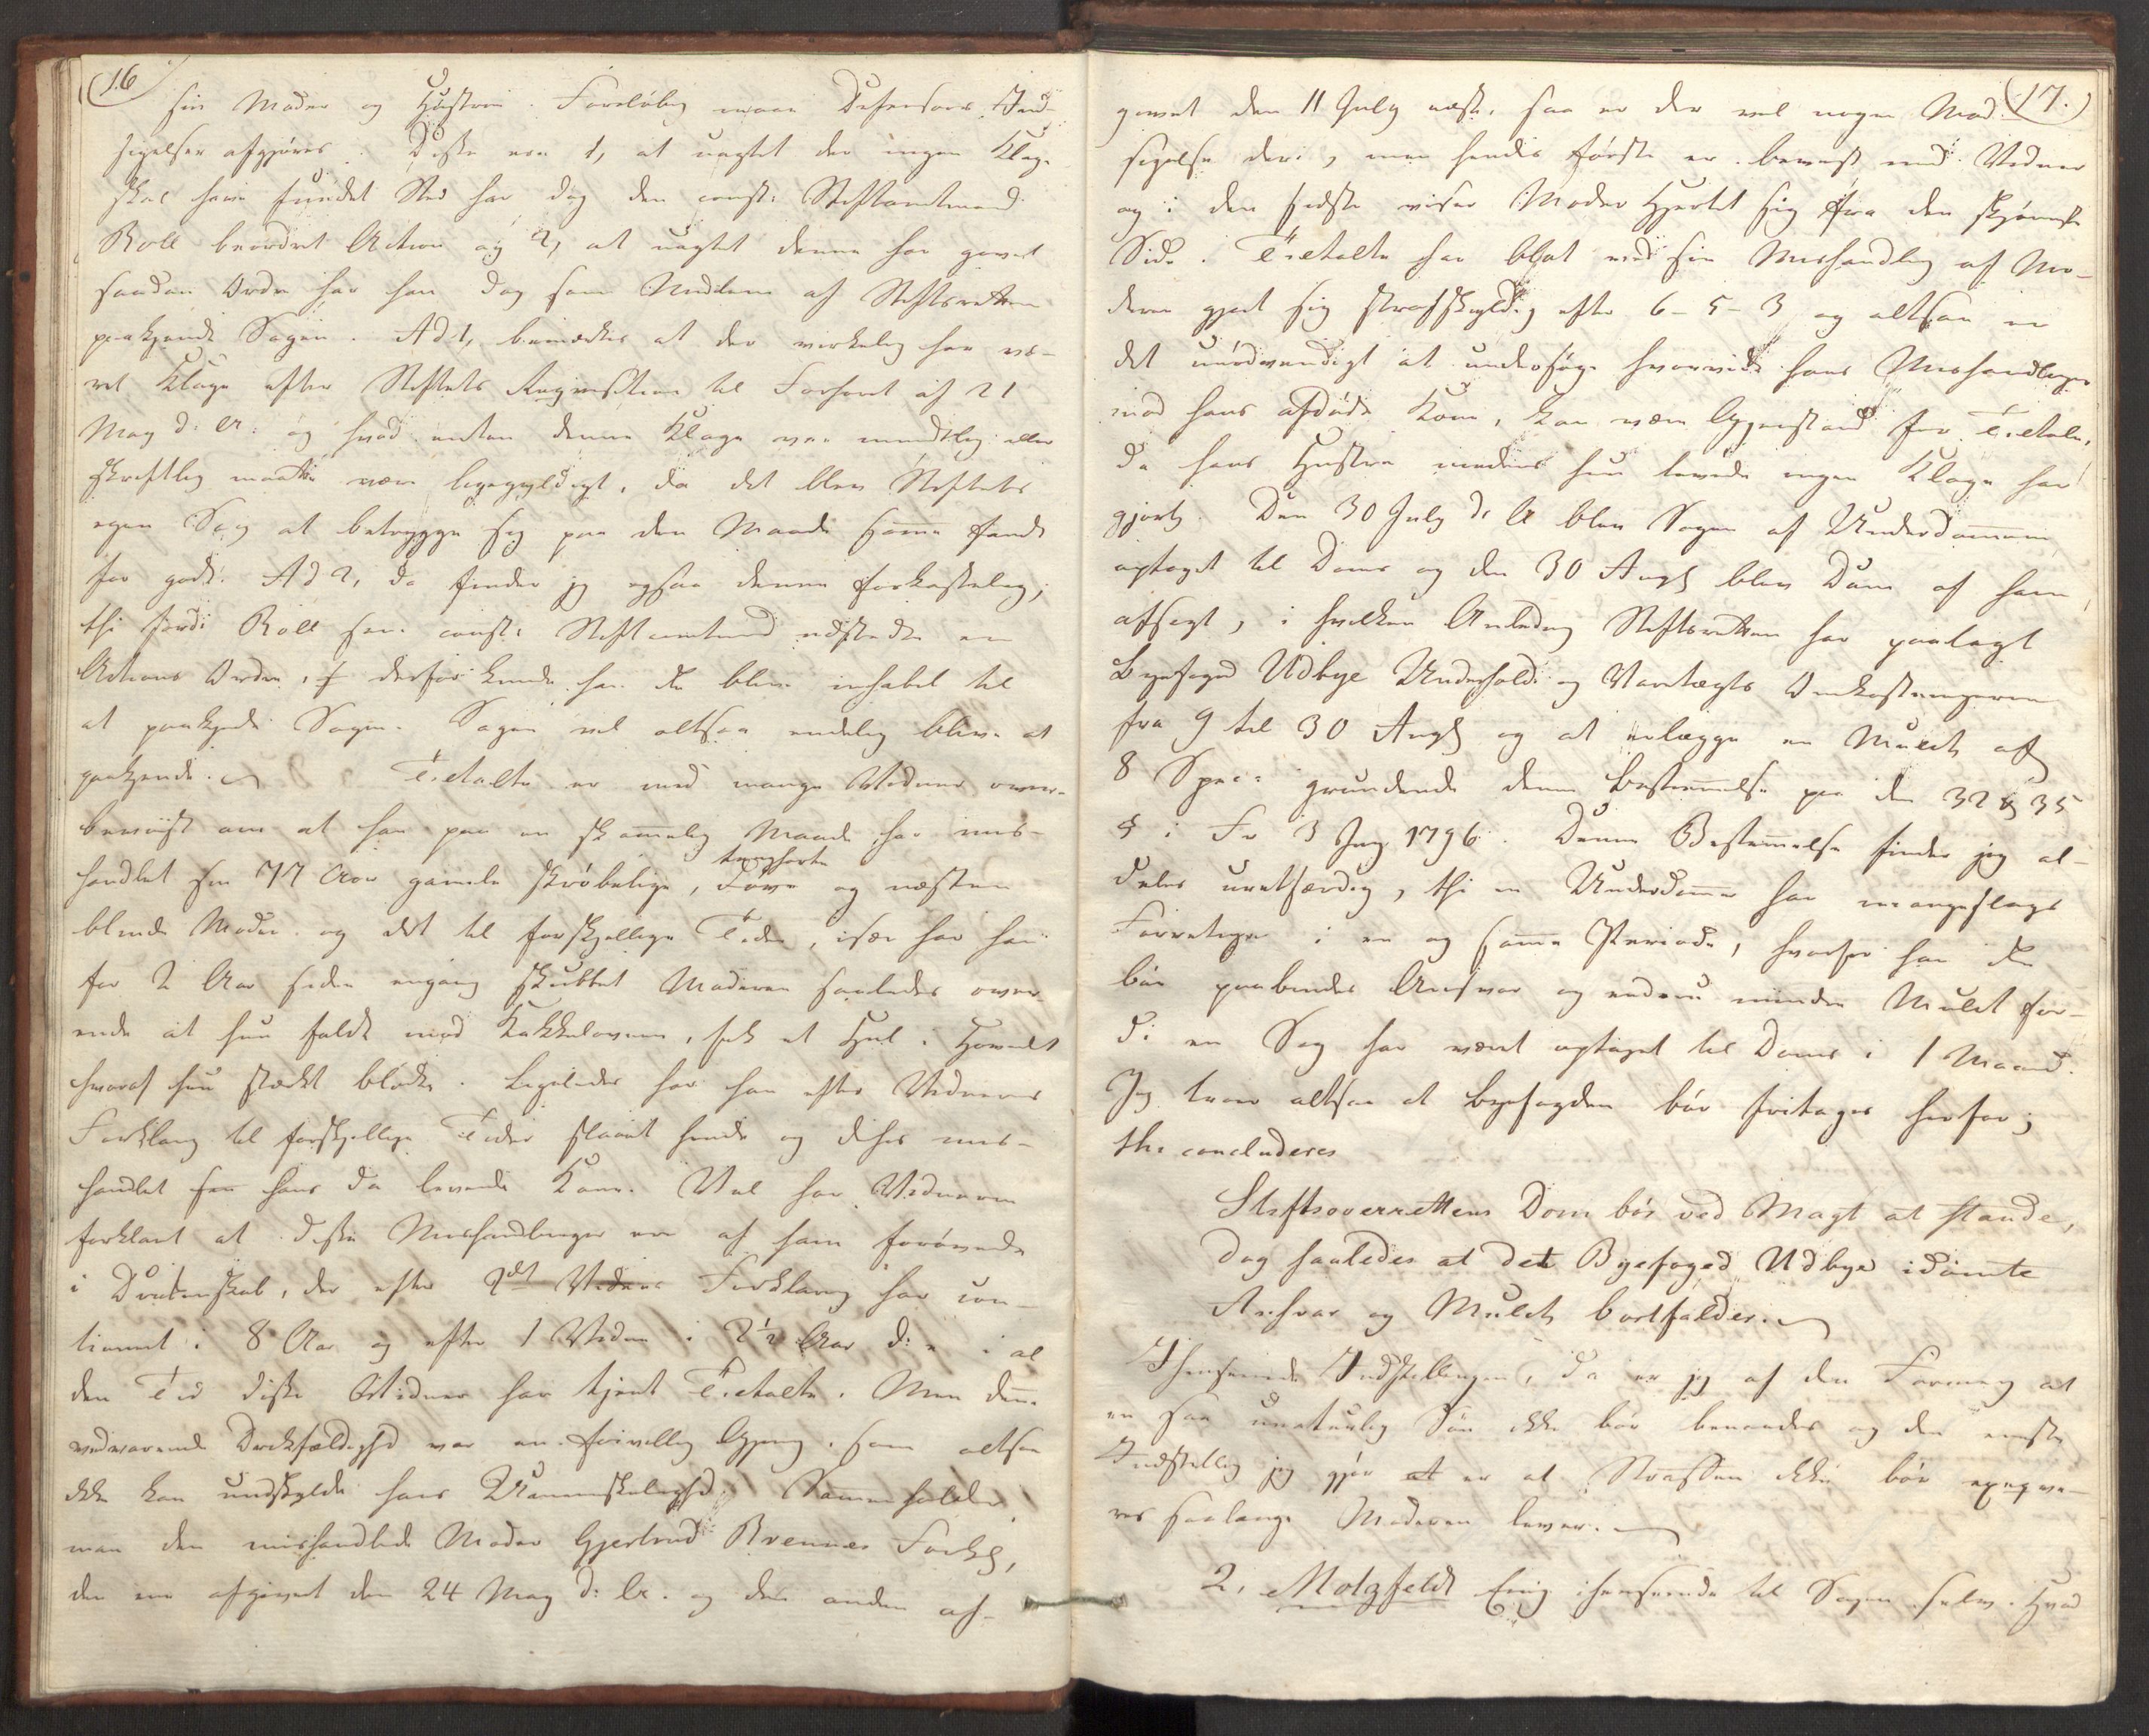 (16
sin Moder og Hustrue. Foreløbig maae Defensors Ind-
sigelser afgjøres. Disse ere 1, at uagtet der ingen Klage
skal have fundet Sted har dog den const: Stiftamtmand
Roll beordret Action og 2, at uagtet denne har givet
saadan Ordre har han dog som Medlem af Stiftsretten
paakjendt Sagen. Ad 1, bemærkes at der virkelig har væ-
ret Klage efter Stiftets Reqvisition til Forhøret af 21
May d: A: og hvad enten denne Klage var mundtlig eller
skriftlig maatte være ligegyldigt, da det blev Stiftets
egen Sag at betrygge sig paa den Maade samme fandt
for godt. Ad 2, da finder jeg ogsaa denne forkastelig;
thi fordi Roll som const: Stiftamtmand udstedte en
Actions Ordre, derfor kunde han ei blive inhabil til
at paakjende Sagen. Sagen vil altsaa endelig blive at
paakjende. Tiltalte er med mange Vidner over-
beviist om at han paa en skammelig Maade har mis-
handlet sin 77 Aar gamle skrøbelige, tunghørte døve og næsten
blinde Moder og det til forskjellige Tider, især har han
for 2 Aar siden engang skubbet Moderen saaledes over-
ende at hun faldt mod Kakkelovnen, fik et Hul i Hovedet
hvoraf hun stærkt blødte. Ligeledes har han efter Vidnernes
Forklaring til forskjellige Tider slaaet hende og ligesaa mis-
handlet sin hans da levende Kone. Vel har Vidnerne
forklaret at disse Mishandlinger ere af ham forøvede
i Drukenskab, der efter 2det Vidnes Forklaring har con-
tinueret i 8 Aar og efter 1 Vidne i 2½ Aar d: e: i al
den Tid disse Vidner har tjent Tiltalte. Men denne
vedvarende Drikfældighed var en frivillig Gjerning, som altsaa
ikke kan undskylde hans Umenneskelighed. Sammenholder
man den mishandlede Moder Gjertrud Brennes Forkl,
den ene afgivet den 24 May d: A. og den anden af-
17.)
givet den 11 July næstef. saa er der vel nogen Mod-
sigelse deri, men hendes første er bevist med Vidner
og i den sidste viser Moder Hjertet sig fra den skjønneste
Side. Tiltalte har blot ved sin Mishandling af Mo-
deren gjort sig strafskyldig efter 6-5-3 og altsaa er
det unødvendigt at undersøge hvorvidt hans Mishandlinger
mod hans afdøde Kone, kan være Gjenstand for Tiltale,
da hans Hustru medens hun levede ingen Klage har
gjort. Den 30 July d: A blev Sagen af Underdommeren
optaget til Doms og den 30 Augt blev Dom af ham
afsagt, i hvilken Anledning Stiftsretten har paalagt
Byefoged Udbye Underholds og Varetægts Omkostningerne
fra 9 til 30 Augt og at erlægge en Mulct af
8 Spec: grundende denne Bestemmelse paa den 32 & 35
§ i Fr 3 Juny 1796. Denne Bestemmelse finder jeg al-
deles uretfærdig, thi en Underdommer har mangeslags
Forretninger i en og samme Periode, hvorfor han ei
bør paabindes Ansvar og endnu mindre Mulct for-
di en Sag har været optaget til Doms i 1 Maaned.
Jeg troer altsaa at Byefogden bør fritages herfor;
thi concluderes
Stiftsoverrettens Dom bør ved Magt at stande,
dog saaledes at det Byefoged Udbye idømte
Ansvar og Mulct bortfalder.
Ihenseende Indstillingen, da er jeg af den Formening at
en saa unaturlig Søn ikke bør benaades og den eneste
Indstilling jeg gjør er at Straffen ikke bør exeqve-
res saalænge Moderen lever.
2, Motzfeldt Enig ihenseende til Sagen selv. Hvad